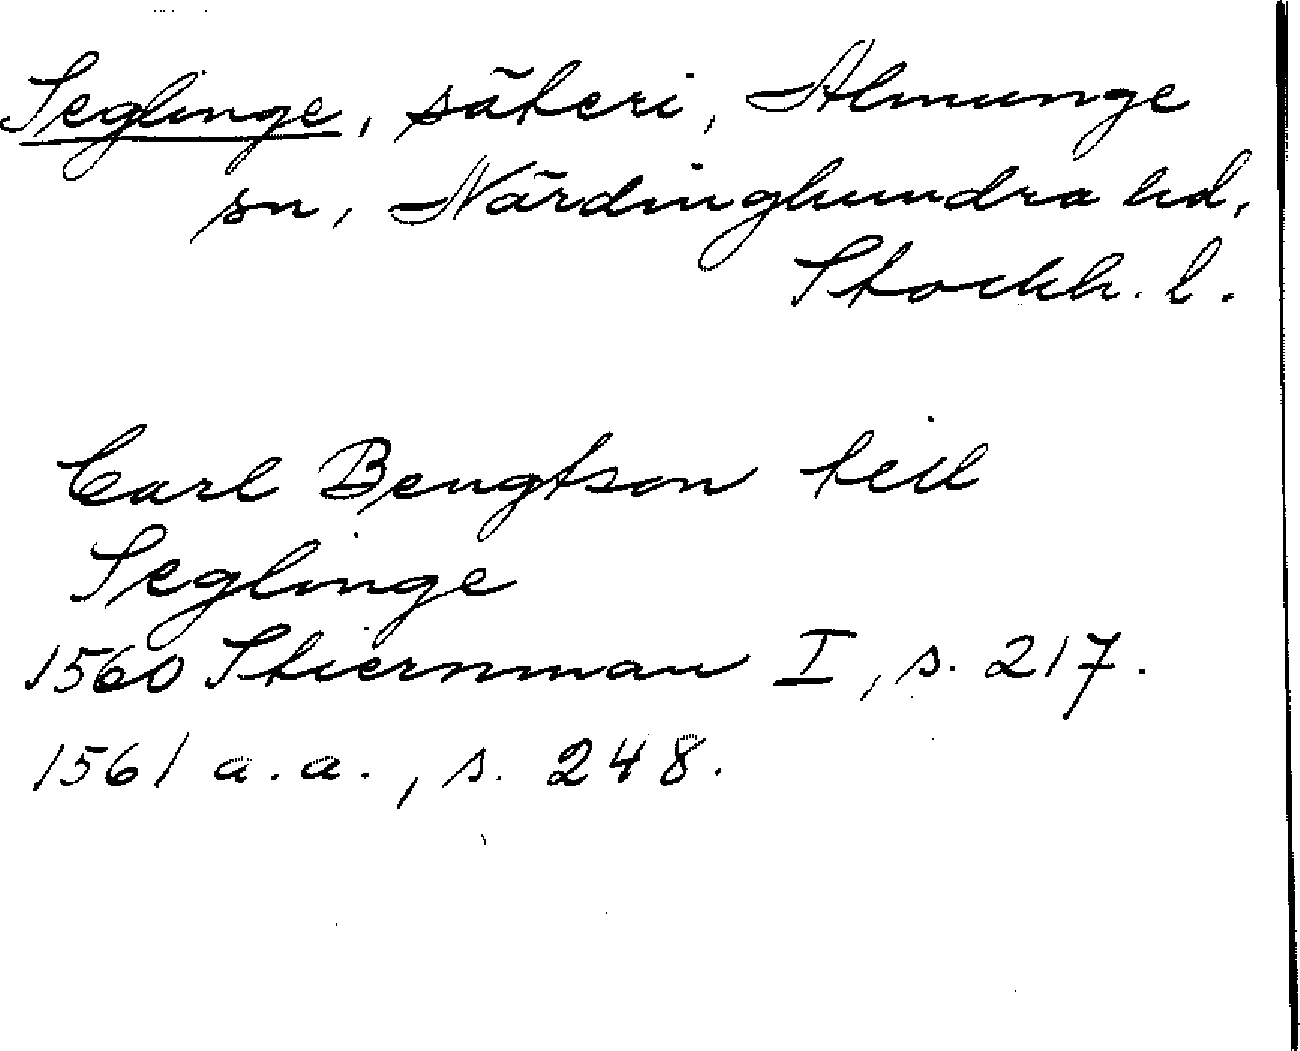 Seglinge, säteri, Almunge
sn, Närdinghundra hd,
Stockh. l.
Carl Bengtson till
Seglinge
1560 Stiernman I, s. 217.
1561 a.a., s. 248.